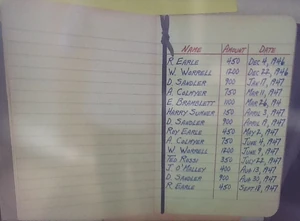 NAME AMOUNT DATE
R. EARLE 450 DEC 4, 1946
W. WORRELL 1200 DEC 22, 1946
D. SANDLER 900 JAN 17, 1947
A. COLMYER 750 MAR 11, 1947
E. BRAMBLETT 1100 MAR 26, 1947
HARRY SUMNER 150 APRIL 3, 1947
D. SANDLER 900 APRIL 11, 1947
ROY EARLE 450 MAY 2, 1947
A. COLMYER 750 JUNE 4, 1947
W. WORRELL 1200 JUNE 9, 1947
TED ROSSI 350 JULY 22, 1947
J. O'MALLEY 400 AUG 13, 1947
D. SANDLER 900 AUG 30, 1947
R. EARLE 450 SEPT 18, 1947